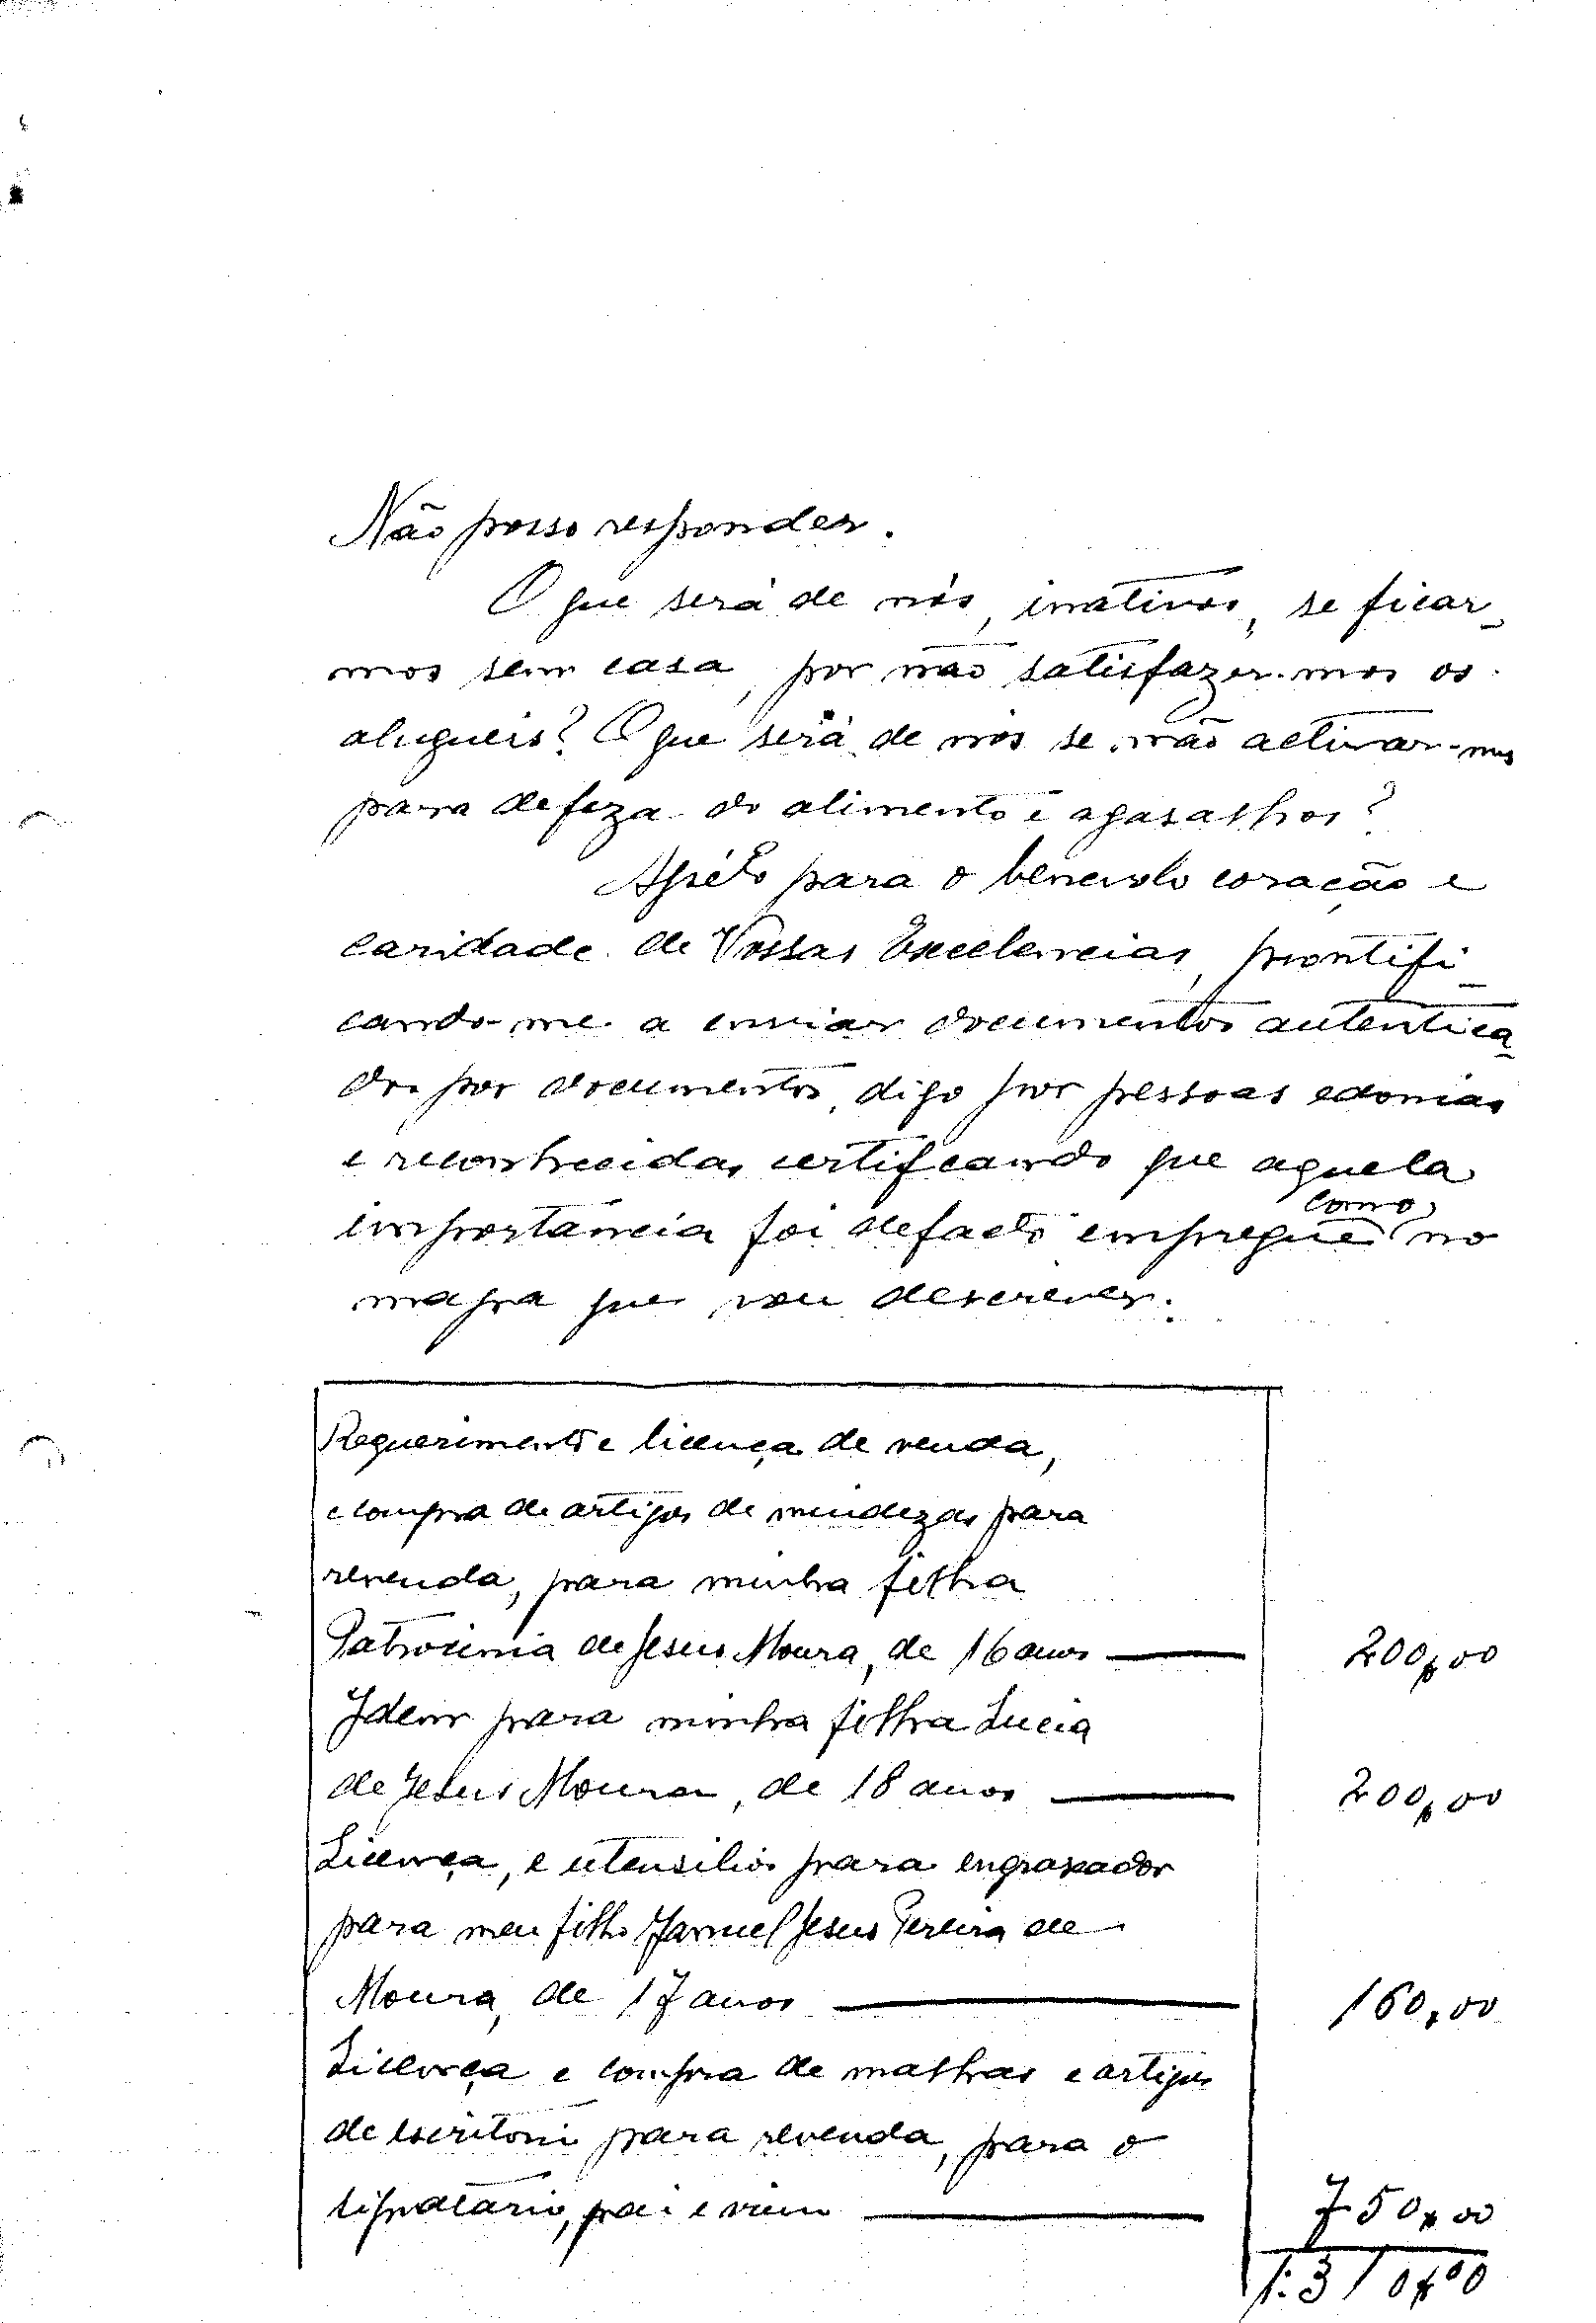 Não posso responder.
O que será de nós, inativos, se ficar-
mos sem casa, por não satisfazer-mos os
alugueis? O que será de nós se não activar-mos
para defeza do alimento e agasalhos?
Apélo para o benevolo coração e
caridade de Vossas Excelencias, prontifi-
cando-me a enviar documentos autentica-
dos por documentos, digo por pessoas edonias
e reconhecidas certificando que aquela
importancia foi defacto empregue como no
mapa que vou descrever.
Requerimento e licença de venda,
e compra de artigos de miudezas para
revenda, para minha filha
Patrocinia de Jesus Moura, de 16 anos — 200$00
Idem para minha filha Lucia
de Jesus Moura, de 18 anos — 200$00
Licença, e utensilios para engraxador
para meu filho Jesus Pereira de
Moura, de 17 anos — 160$00
Licença e compra de malhas e artigos
de escritorio para revenda, para o
signatario, pai e viuvo — 750$00
1:310$00